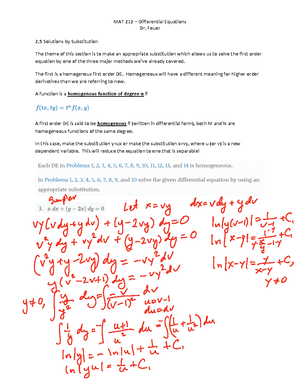 MAT 212 – Differential Equations
Dr. Feuer
2.5 Solutions by Substitution
The theme of this section is to make an appropriate substitution which allows us to solve the first order
equation by one of the three major methods we've already covered.
The first is a homogeneous first order DE. Homogeneous will have a different meaning for higher order
derivatives than we are referring to now.
A function is a homogenous function of degree α if
f(tx, ty) = t^α f(x, y)
A first order DE is said to be homogenous if (written in differential form), both M and N are
homogeneous functions of the same degree.
In this case, make the substitution y=ux or make the substitution x=vy, where u (or v) is a new
dependent variable. This will reduce the equation to one that is separable!
Each DE in Problems 1, 2, 3, 4, 5, 6, 7, 8, 9, 10, 11, 12, 13, and 14 is homogeneous.
In Problems 1, 2, 3, 4, 5, 6, 7, 8, 9, and 10 solve the given differential equation by using an
appropriate substitution.
simpler
3. x dx + (y − 2x) dy = 0
Let x=vy dx=vdy+ydv
vy(vdy+ydv) + (y-2vy)dy=0
v²ydy + vy²dv + (y-2vy)dy=0
(v²y+y-2vy)dy = -vy²dv
y(v²-2v+1)dy = -vy²dv
y≠0, ∫ y/y² dy = ∫ -v/(v-1)² dv
u=v-1
du=dv
∫ 1/y dy = -∫ (u+1)/u² du = -∫(1/u + 1/u²)du
ln|y| = -ln|u| + 1/u + C₁
ln|yu| = 1/u + C₁
ln|y(v-1)| = 1/(v-1) + C₁
ln|x-y| = y/(x-y) + C₁
y≠0